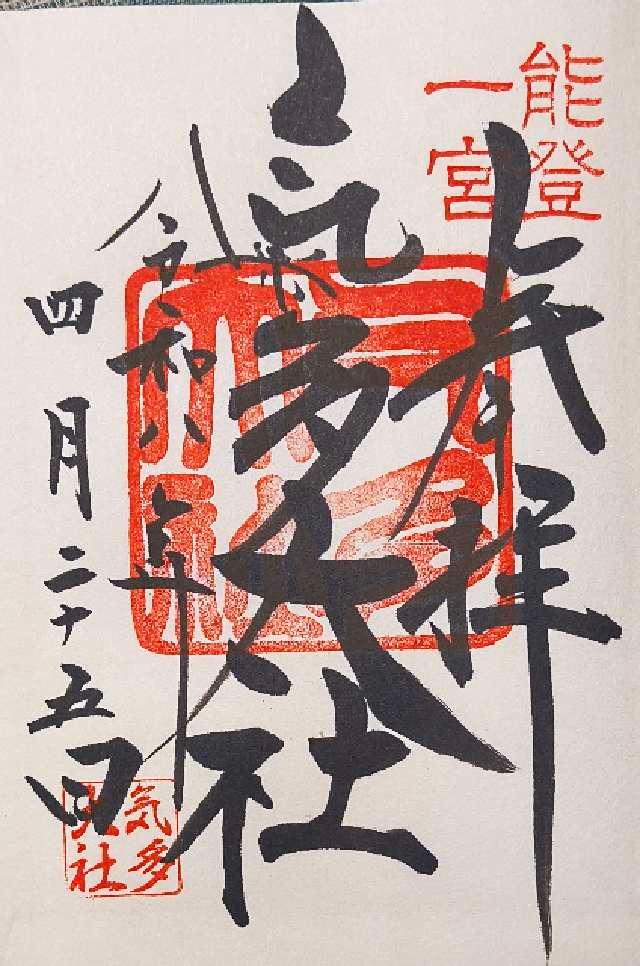 能登
一宮
奉拝
氣多大社
令和八年
四月二十五日
気多
大社